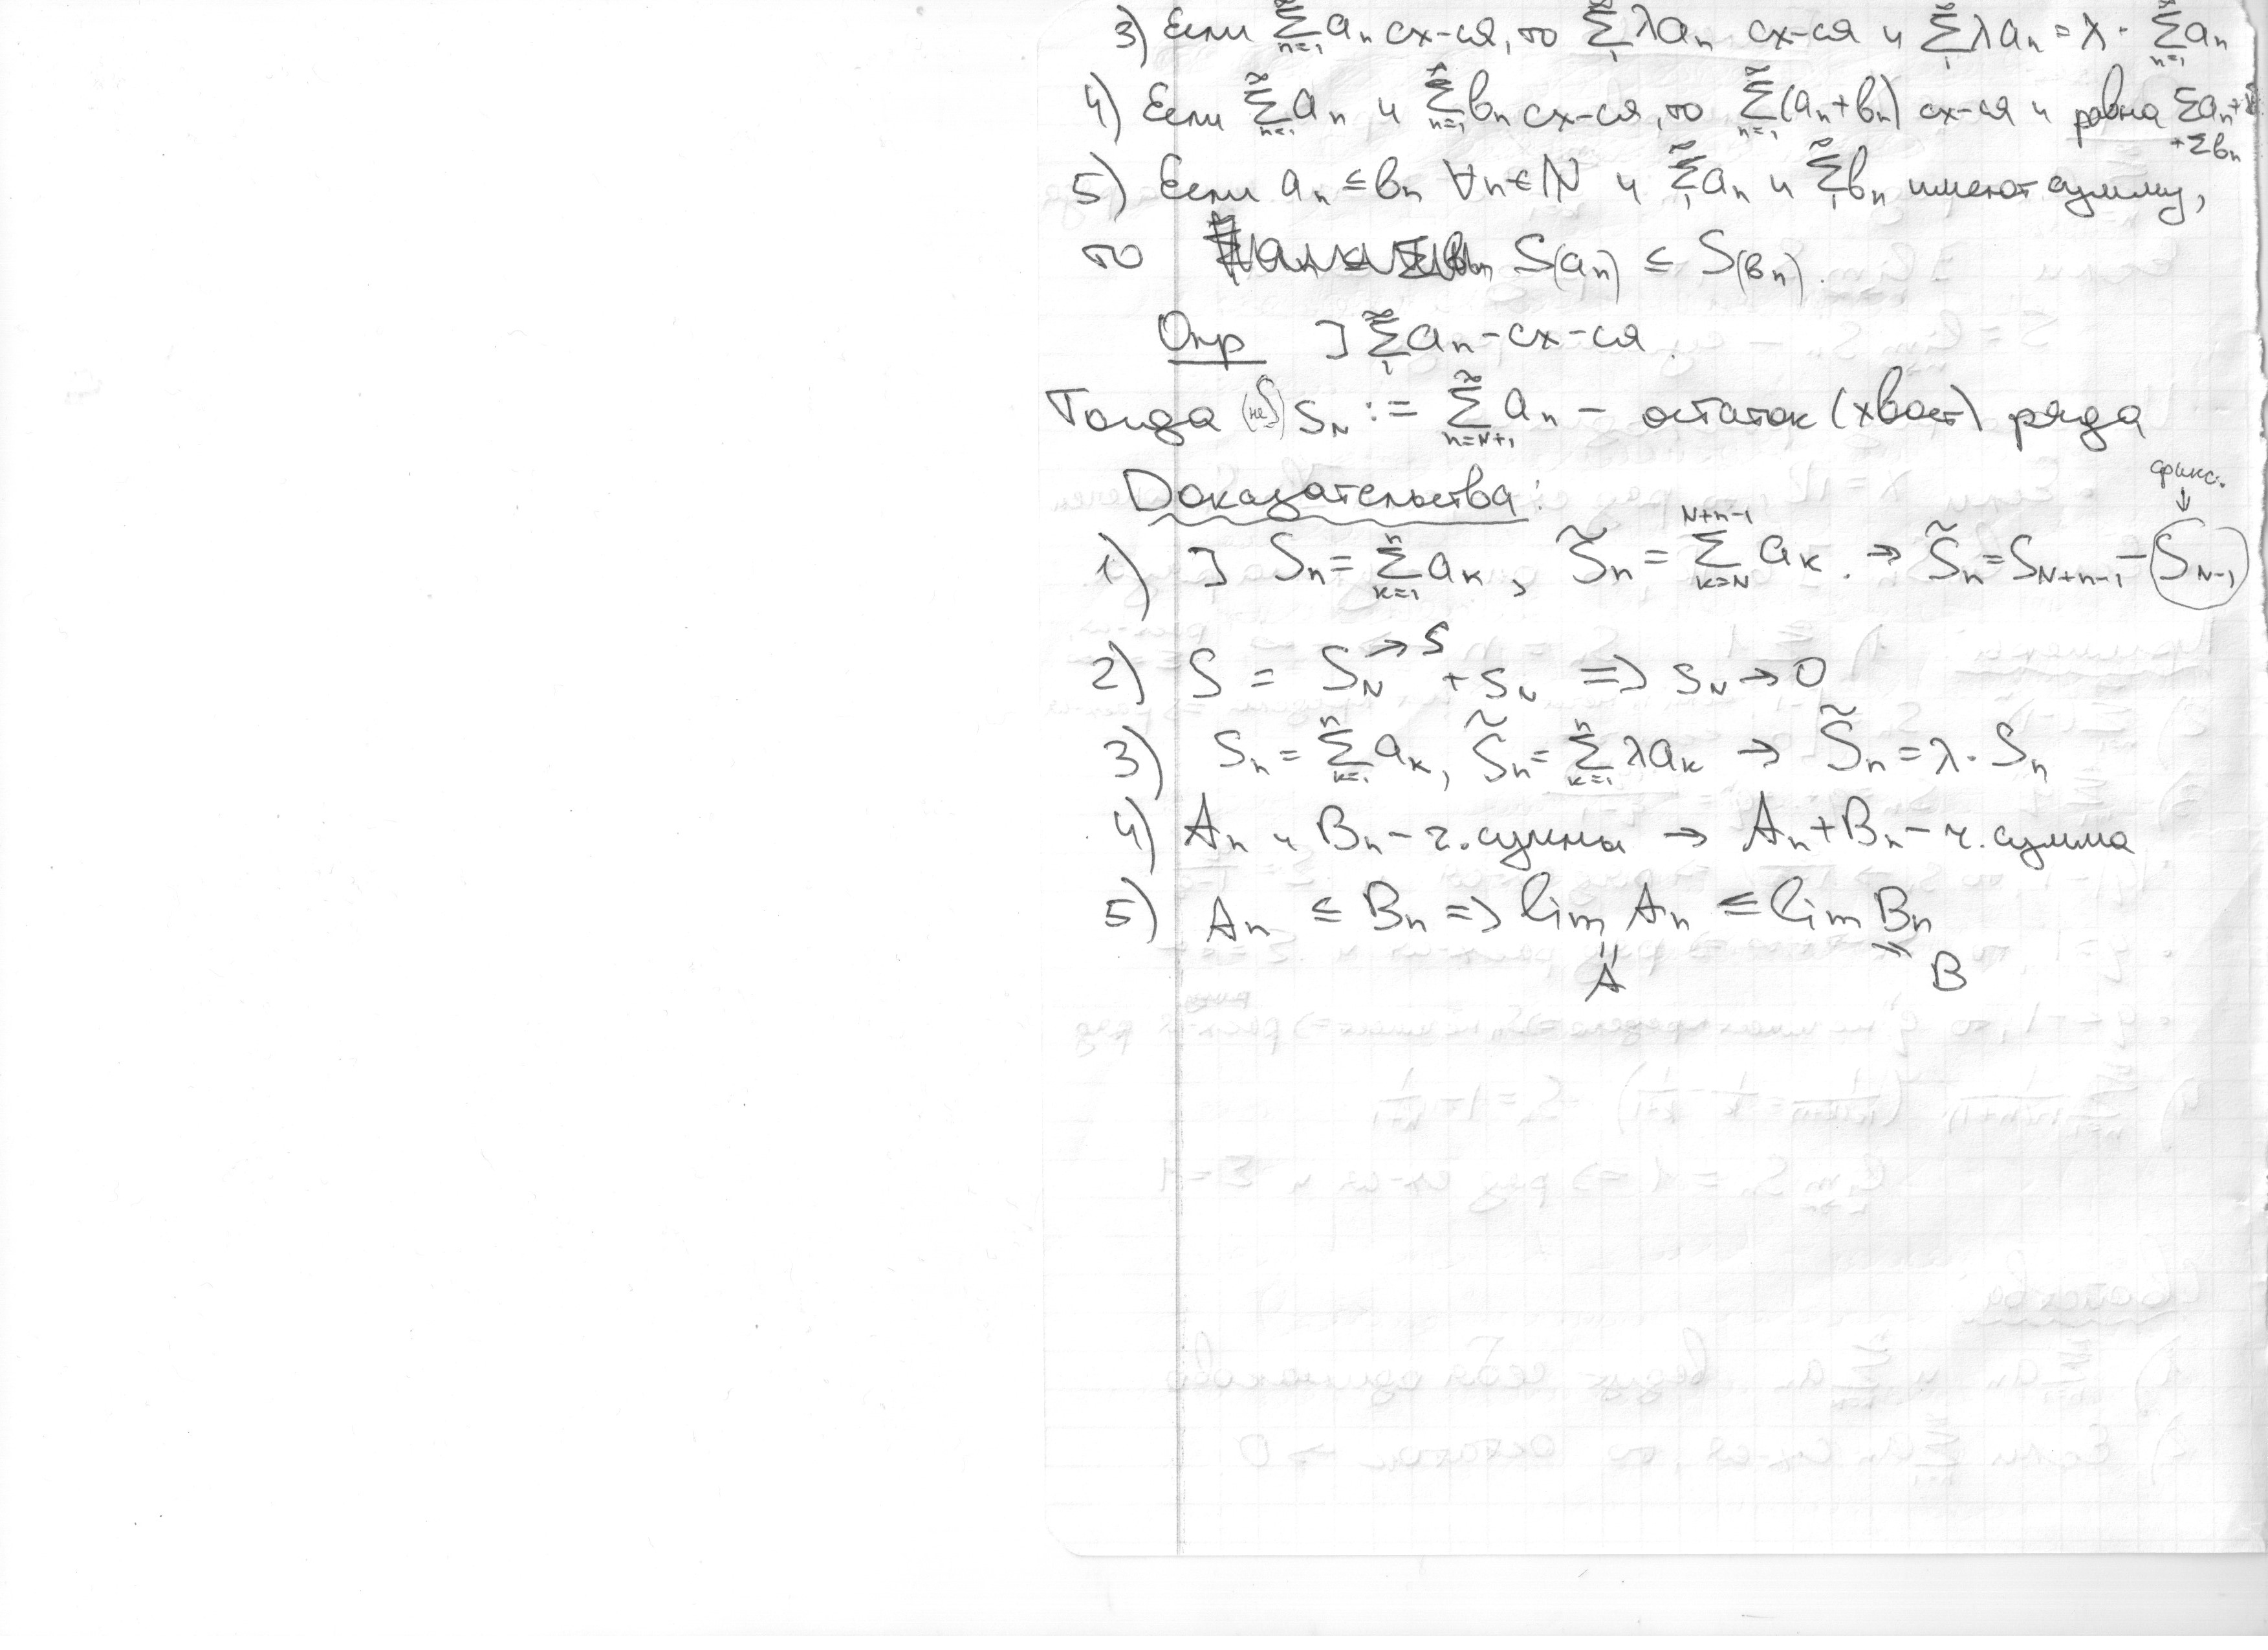 3) Если ∑_{n=1}^∞ aₙ сх-ся, то ∑_1^∞ λaₙ сх-ся и ∑_1^∞ λaₙ = λ · ∑_{n=1}^∞ aₙ
4) Если ∑_{n=1}^∞ aₙ и ∑_{n=1}^∞ bₙ сх-ся, то ∑_{n=1}^∞ (aₙ+bₙ) сх-ся и равна ∑aₙ+
+∑bₙ
5) Если aₙ ≤ bₙ ∀n∈ℕ и ∑_1^∞ aₙ и ∑_1^∞ bₙ имеют сумму,
то S(aₙ) ≤ S(bₙ).
Опр ] ∑_1^∞ aₙ - сх-ся.
Тогда (не S) s_N := ∑_{n=N+1}^∞ aₙ - остаток (хвост) ряда
Доказательства:
фикс.
↓
1) ] Sₙ = ∑_{k=1}^n a_k, S̃ₙ = ∑_{k=N}^{N+n-1} a_k. → S̃ₙ = S_{N+n-1} - S_{N-1}
2) S = S_N^{→S} + s_N ⇒ s_N → 0
3) Sₙ = ∑_{k=1}^n a_k, S̃ₙ = ∑_{k=1}^n λa_k → S̃ₙ = λ · Sₙ
4) Aₙ и Bₙ - ч. суммы → Aₙ+Bₙ - ч. сумма
5) Aₙ ≤ Bₙ ⇒ lim Aₙ ≤ lim Bₙ
= A = B